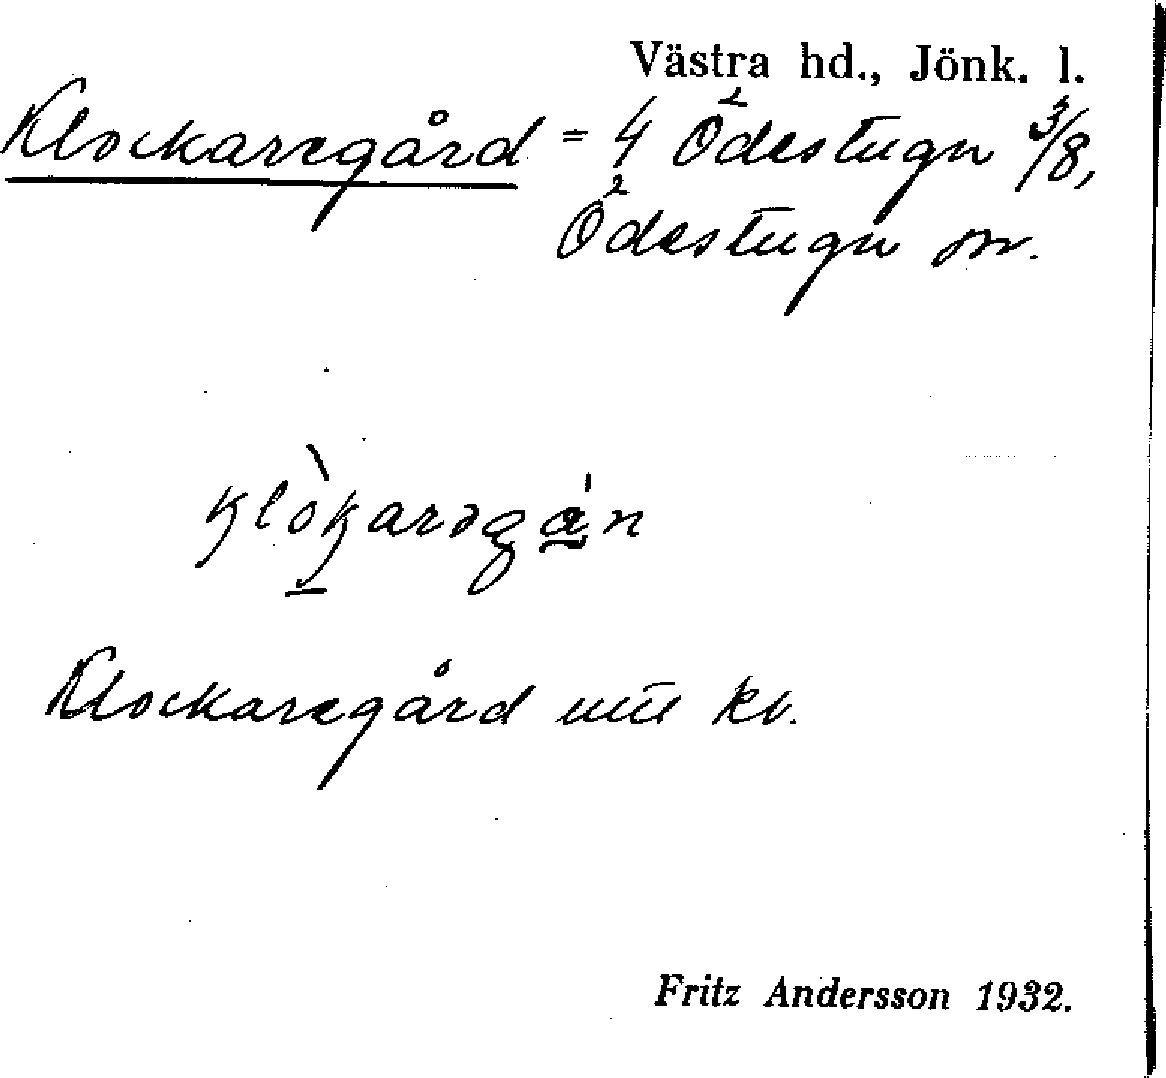 Västra hd., Jönk. l.
Klockaregård = 4 Ödestugu 3/8,
Ödestugu sn.
Klockaregård nu kv.
Fritz Andersson 1932.